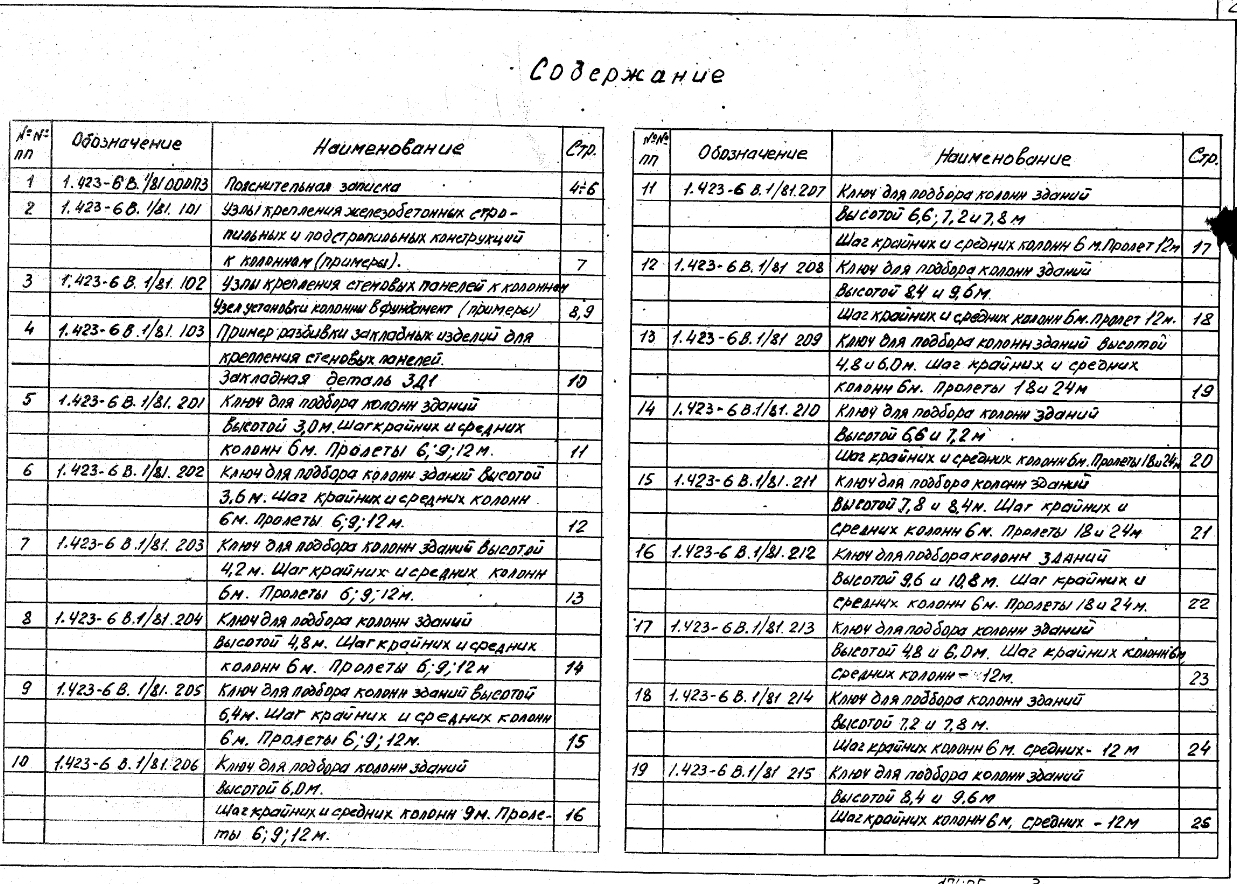 Содержание
№№ Обозначение Наименование Стр.
пп
1 1.423-6 В.1/81 000ПЗ Пояснительная записка 4÷6
2 1.423-6В. 1/81. 101 Узлы крепления железобетонных стро-
пильных и подстропильных конструкций
к колоннам (примеры). 7
3 1.423-6 В. 1/81. 102 Узлы крепления стеновых панелей к колоннам
Узел установки колонны в фундамент (примеры) 8,9
4 1.423-6 В.1/81. 103 Пример разбивки закладных изделий для
крепления стеновых панелей.
Закладная деталь ЗД1 10
5 1.423-6 В. 1/81. 201 Ключ для подбора колонн зданий
Высотой 3,0м. Шаг крайних и средних
колонн 6м. Пролеты 6; 9; 12 м. 11
6 1.423-6 В. 1/81. 202 Ключ для подбора колонн зданий высотой
3,6 м. Шаг крайних и средних колонн
6м. Пролеты 6; 9; 12 м. 12
7 1.423-6 В.1/81. 203 Ключ для подбора колонн зданий высотой
4,2 м. Шаг крайних и средних колонн
6м. Пролеты 6; 9; 12м. 13
8 1.423-6 В.1/81. 204 Ключ для подбора колонн зданий
Высотой 4,8м. Шаг крайних и средних
колонн 6м. Пролеты 6; 9; 12м 14
9 1.423-6 В. 1/81. 205 Ключ для подбора колонн зданий высотой
6,4м. Шаг крайних и средних колонн
6 м. Пролеты 6; 9; 12м. 15
10 1.423-6 В. 1/81. 206 Ключ для подбора колонн зданий
Высотой 6,0м.
Шаг крайних и средних колонн 9м. Проле- 16
ты 6; 9; 12 м.
№№ Обозначение Наименование Стр.
пп
11 1.423-6 В.1/81.207 Ключ для подбора колонн зданий
Высотой 6,6; 7,2 и 7,8 м
Шаг крайних и средних колонн 6 м. Пролет 12м 17
12 1.423-6 В. 1/81 208 Ключ для подбора колонн зданий
Высотой 8,4 и 9,6м.
Шаг крайних и средних колонн 6м. Пролет 12м. 18
13 1.423-6В. 1/81 209 Ключ для подбора колонн зданий высотой
4,8 и 6,0м. Шаг крайних и средних
колонн 6м. Пролеты 18 и 24м 19
14 1.423-6 В.1/81. 210 Ключ для подбора колонн зданий
Высотой 6,6 и 7,2 м
Шаг крайних и средних колонн 6м. Пролеты 18 и 24м 20
15 1.423-6 В.1/81. 211 Ключ для подбора колонн зданий
Высотой 7,8 и 8,4м. Шаг крайних и
средних колонн 6м. Пролеты 18 и 24м 21
16 1.423-6 В.1/81. 212 Ключ для подбора колонн зданий
Высотой 9,6 и 10,8 м. Шаг крайних и
средних колонн 6м. Пролеты 18 и 24м. 22
17 1.423-6 В.1/81. 213 Ключ для подбора колонн зданий
Высотой 4,8 и 6,0м. Шаг крайних колонн 6м
средних колонн - 12м. 23
18 1.423-6 В. 1/81 214 Ключ для подбора колонн зданий
Высотой 7,2 и 7,8 м.
Шаг крайних колонн 6 м. средних - 12 м 24
19 1.423-6 В. 1/81 215 Ключ для подбора колонн зданий
Высотой 8,4 и 9,6м
Шаг крайних колонн 6 м, средних - 12м 25